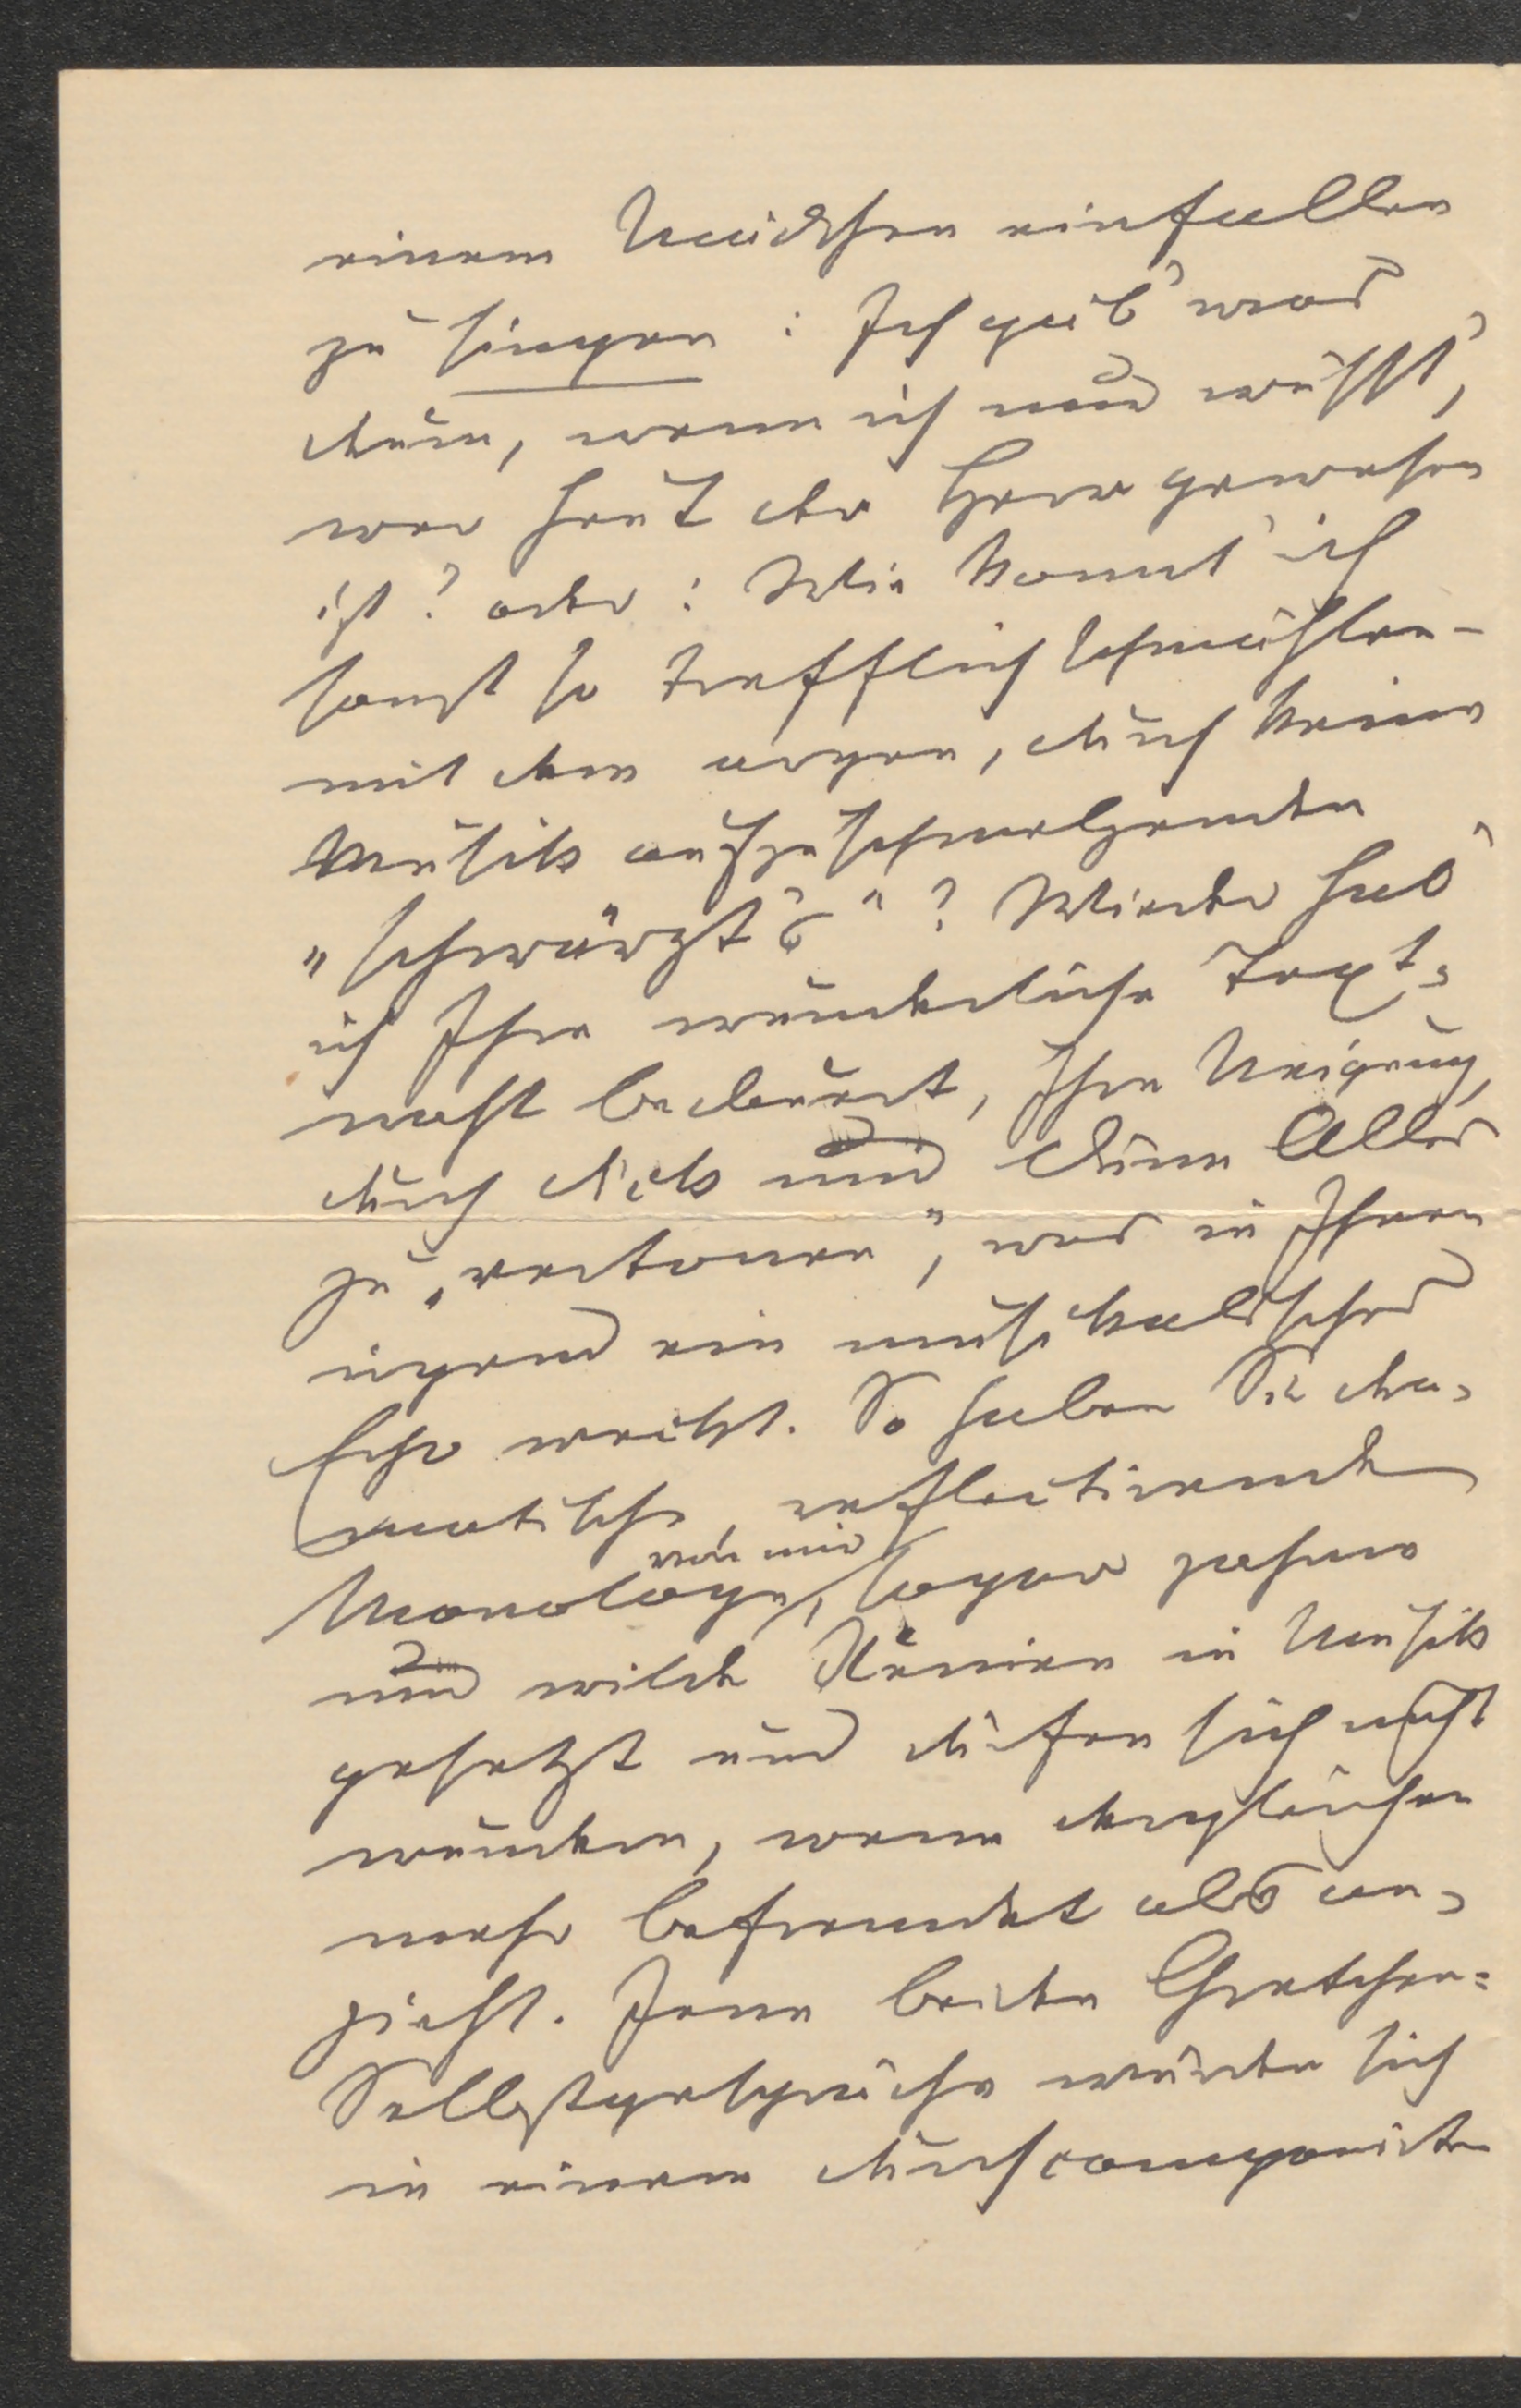 einem Mädchen einfallen
zu singen: Ich gäb' was
drum, wenn ich nur wüßt',
wer heut der Herr gewesen
ist? oder: Wie konnt' ich
sonst so trefflich schmählen –
mit dem argen, durch keine
Musik aufzuschmelzenden
„schwärzt's"? Wieder hab'
ich Ihre wunderliche Text-
wahl bedauert, Ihre Neigung,
durch Dick und Dünn Alles
zu „vertonen", was in Ihnen
irgend ein musikalisches
Echo weckt. So haben Sie dra-
matische, reflectirende
Monologe, von mir sogar zahme
und wilde Xenien in Musik
gesetzt und dürfen sich nicht
wundern, wenn dergleichen
mehr befremdet als an-
zieht. Jene beiden Gretchen-
Selbstgespräche würden sich
in einem durchcomponirten